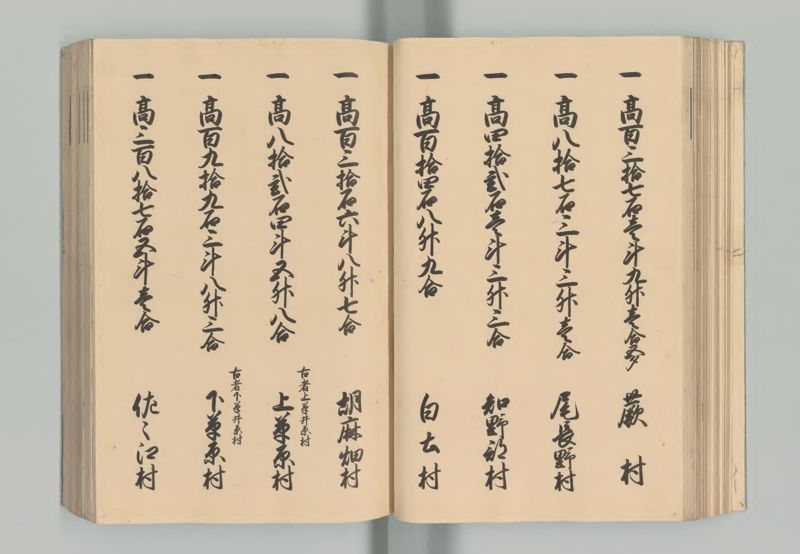 一 高百三拾七石壱斗九升壱合 蕨村
一 高八拾七石三斗三升壱合 尾長野村
一 高四拾弐石壱斗三升三合 知野部村
一 高百拾四石八升九合 白土村
一 高百三拾石六斗八升七合 胡麻畑村
古者上草井原村
一 高八拾弐石四斗五升八合 上草原村
古者下草井原村
一 高百九拾九石三斗八升三合 下草原村
一 高三百八拾七石五斗壱合 佐々江村